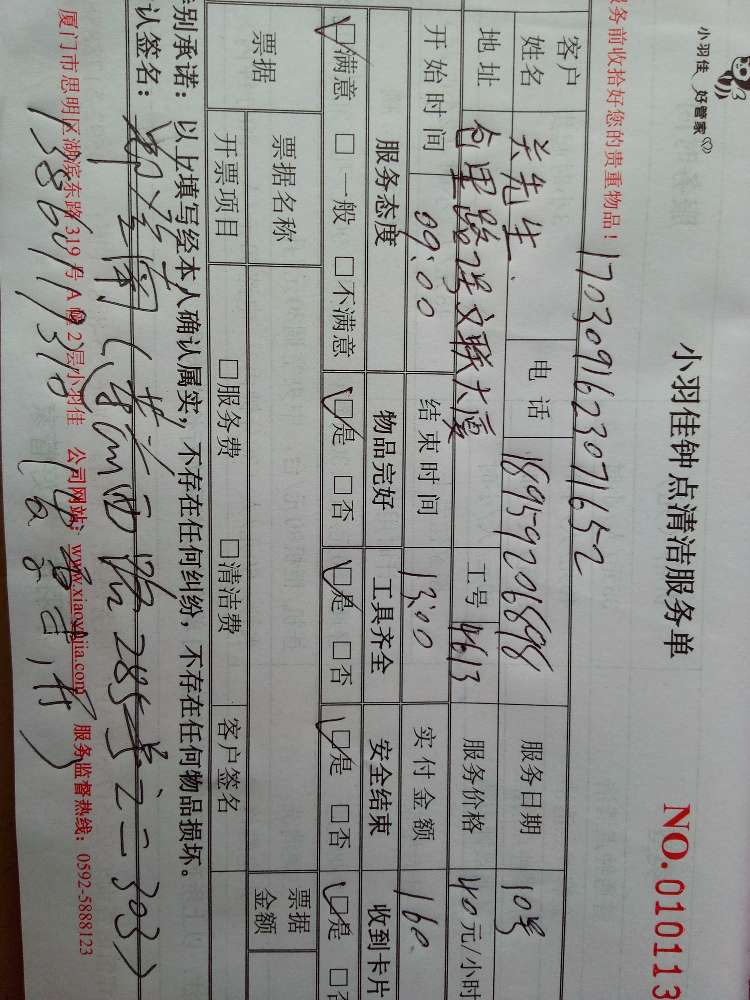 小羽佳 好管家
小羽佳钟点清洁服务单
NO.010113
务前收拾好您的贵重物品!
17030916230711652
客户姓名 关先生 电话 18959206898 服务日期 10号
地址 文联大厦 工号 4613 服务价格 40元/小时
开始时间 09:00 结束时间 13:00 实付金额 160
服务态度 物品完好 工具齐全 安全结束 收到卡片
☑满意 □一般 □不满意 ☑是 □否 ☑是 □否 ☑是 □否 ☑是 □否
票据 票据名称 票据金额
开票项目 □服务费 □清洁费 客户签名
别承诺:以上填写经本人确认属实,不存在任何纠纷,不存在任何物品损坏。
认签名:
西路285号之二303)
厦门市思明区湖滨东路319号A幢2层小羽佳 公司网站:www.xiaoyujia.com 服务监督热线:0592-5888123